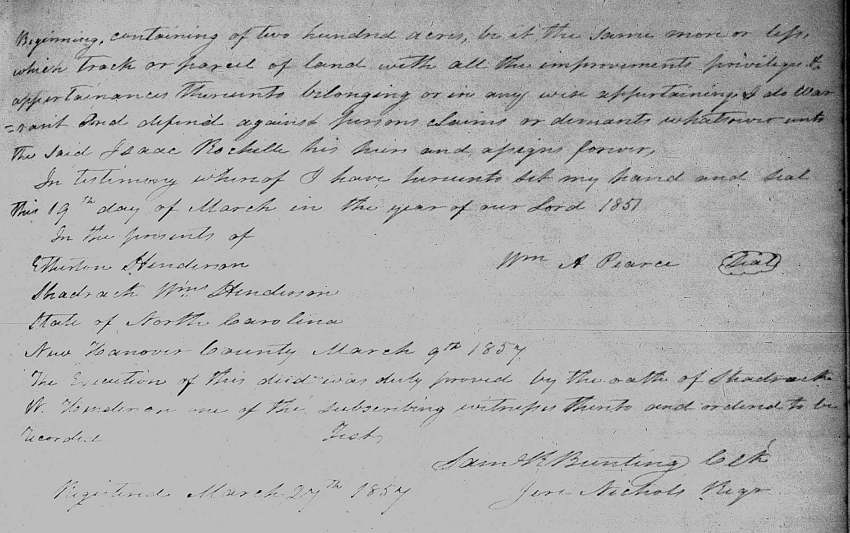 Beginning, containing of two hundred acres, be it the same more or less,
which track or parcel of land with all the improvements privileges &
appertainances thereunto belonging or in any wise appertaining, & do War
=rant And defend against persons claims or demants whatsoever unto
the said Isaac Rochelle his heirs and assigns forever,
In testimony whereof I have hereunto set my hand and seal
this 19th day of March in the year of our Lord 1851
In the presents of
Etherton Henderson Wm A Pearce Seal
Shadrach Wms Henderson
State of North Carolina
New Hanover County March 9th 1857
The Execution of this deed was duly proved by the oath of Shadrach
W. Henderson one of the subscribing witness thereto and ordered to be
recorded Test
Saml R Bunting Clk
Registered March 27th 1857 Jere Nichols Regr